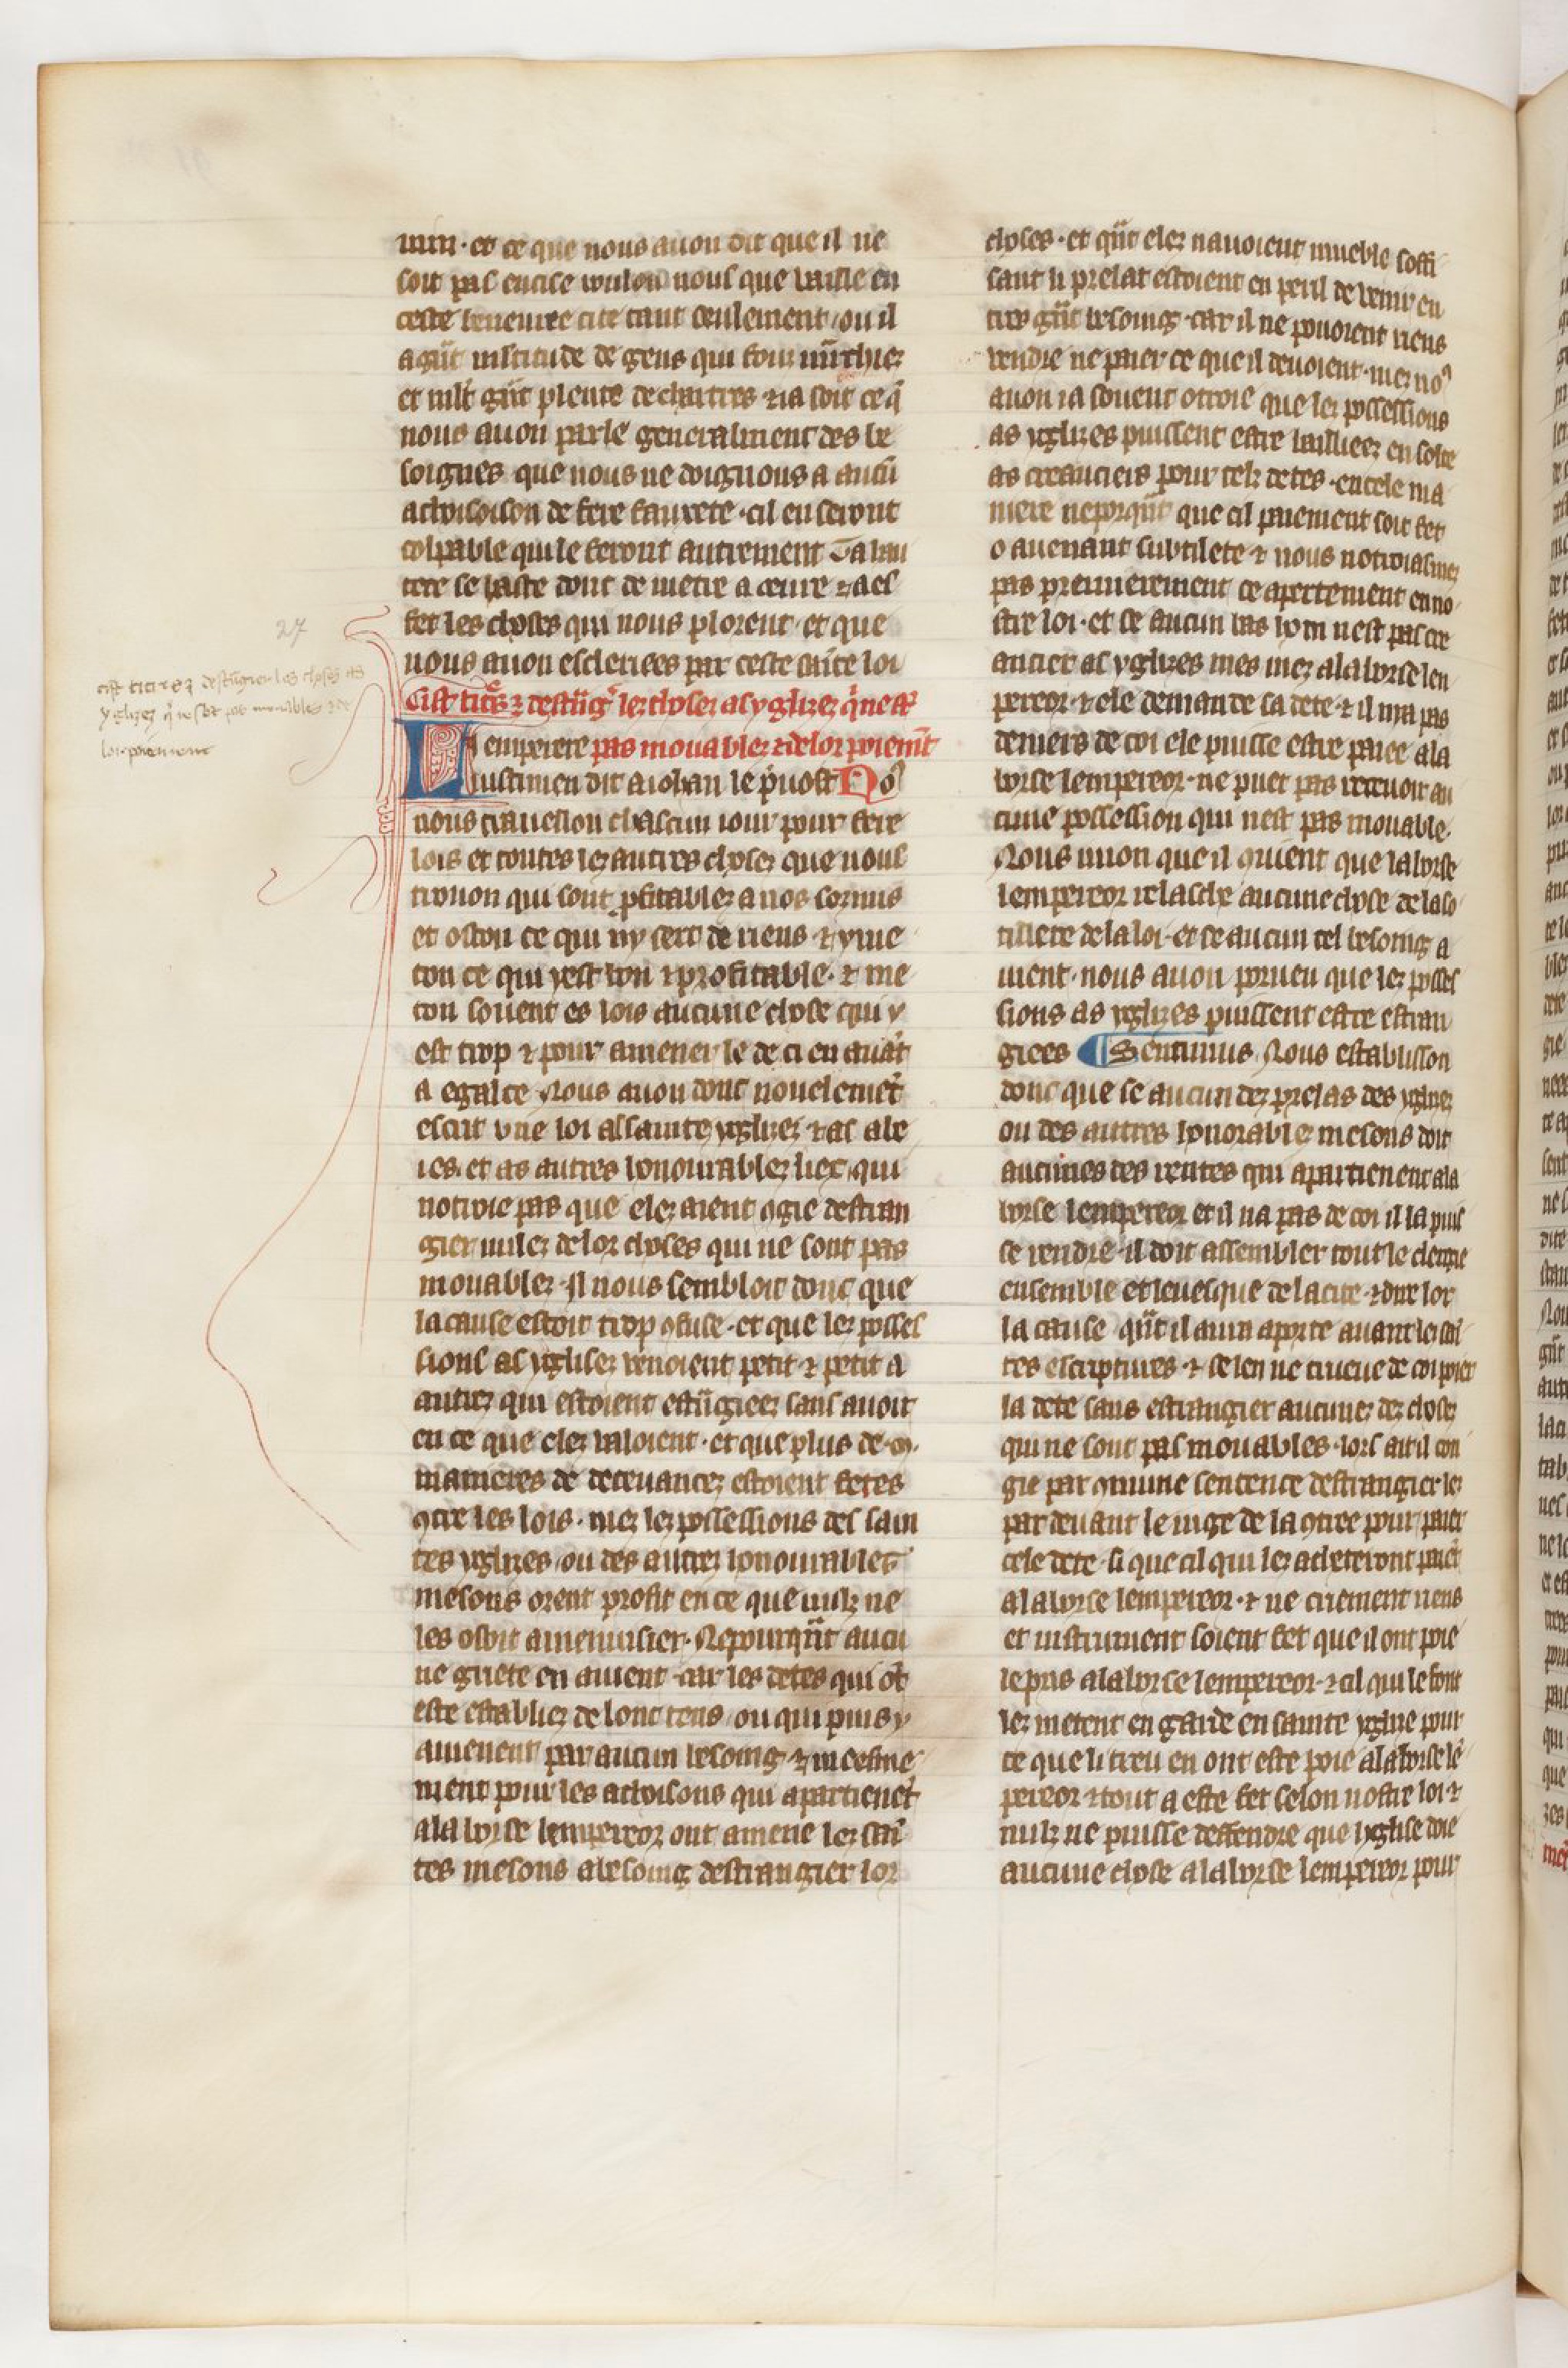 27
cist titres ⁊ destrãgier les choses as
yglizes q̃ ne sõt pas mouables ⁊ de
lor poiement
et ce que nous auon dit que il ne
soit pas encise uoulon nous que vaille en
ceste beneuree cite tant seulement ou il
a grãt multitude de gens qui
et mlt grãt plente de chartres ⁊ ia soit ce q̃
nous auon parle generalment des be
soignes que nous ne doignons a aucũ
achoisoison de fere fausete cil en seront
colpable qui le feront autrement Ta hau
tece se haste donc de metre a œure ⁊ a ef
fet les choses qui nous plorent et que
nous auon escleriees par ceste saĩte loi
Cist titẽs ⁊ destrãgʼ lez choses as yglizez q̃ ne sõt
Lemperere pas mouablez ⁊ de lor poiemẽt
Iustinien dit a iohan le p̃uost No9
nous trauellon chascun iour pour fere
lois et toutes lez autres chosez que nous
trouon qui sont p̃fitablez a nos sozmis
et oston ce qui ny sert de riens ⁊ y me
ton ce qui y est bon ⁊ profitable ⁊ me
ton souent es lois aucune chose qui y
est trop ⁊ pour amener le de ci en auãt
a egalte Nous auon donc nouelemẽt
escrit vne loi as sainte yglizez ⁊ as abe
ies et as autres honourablez liex qui
notroie pas que elez aient ꝯgie destran
gier nulez de lor choses qui ne sont pas
mouablez Il nous sembloit donc que
la cause estoit trop ꝯfuse et que lez posses
sions as yglisez venoient petit ⁊ petit a
autrez qui estoient estrãgieez sans auoir
en ce que elez valoient et que plus de .m.
manieres de deceuancez estoient fetes
ꝯtre les lois mez lez possessions des sain
tes yglizes ou des autrez honourablez
mesons orent profit en ce que nulz ne
les osoit amenuisier Nepourqãt aucu
ne griete en auient car les detes qui õt
este establiez de lonc tens ou qui puis y
auienent par aucun besoing ⁊ meesme
ment pour les achoisons qui apartienẽt
a la borse lempereor ont amene lez saĩ
tes mesons a besoing destrangier lor
choses et qãt elez nauoient mueble soffi
sant li prelat estoient en peril de venir en
tres grãt besoing car il ne pouoient riens
vendre ne paier ce que il deuoient mez no9
auon ia souent otroie que lez possessions
as yglizes puissent estre bailliees en solte
as creanciers pour telz detes en tele ma
niere neporqãt que cil paiement soit fet
o auenant subtilete ⁊ nous notroiasmez
pas premierement ce apertement en no
stre loi et se aucun bas hom nest pas cre
ancier as yglizes mes mez a la borse lem
pereor ⁊ ele demande sa dete ⁊ il nia pas
deniers de coi ele puisse estre paiee a la
borse lempereor ne puet pas receuoir au
cune possession qui nest pas mouable
Nous uuon que il ꝯuient que la borse
lempereor relasche aucune chose de la so
tillete de la loi et se aucun tel besoing a
uient nous auon porueu que lez posses
sions as yglizes puissent estre estran
giees ¶ Sentimus Nous establisson
donc que se aucun dez prelas des yglizez
ou des autres honorablez mesons doit
aucunes des rentes qui apartienent a la
borse lempereor et il na pas de coi il la puis
se rendre il doit assembler tout le clergie
ensemble et leuesque de la cite ⁊ dire lor
la cause qãt il aura aporte auant lez saĩ
tes escriptures ⁊ se len ne trueue de coi poier
la dete sans estrangier aucunez dez chosez
qui ne sont pas mouables lors ait il con
gie par ꝯmune sentence destrangier lez
par deuant le iuge de la ꝯtree pour paier
cele dete si que cil qui lez acheteront paiẽt
a la borse lempereor ⁊ ne criement riens
et instrument soient fet que il ont poie
le pris a la borse lempereor ⁊ cil qui le font
lez metent en garde en sainte yglize pour
ce que li treu en ont este poie a la borse lẽ
pereor ⁊ tout a este fet selon nostre loi ⁊
nulz ne puisse deffendre que lyglise doie
aucune chose a la borse lempereor pour